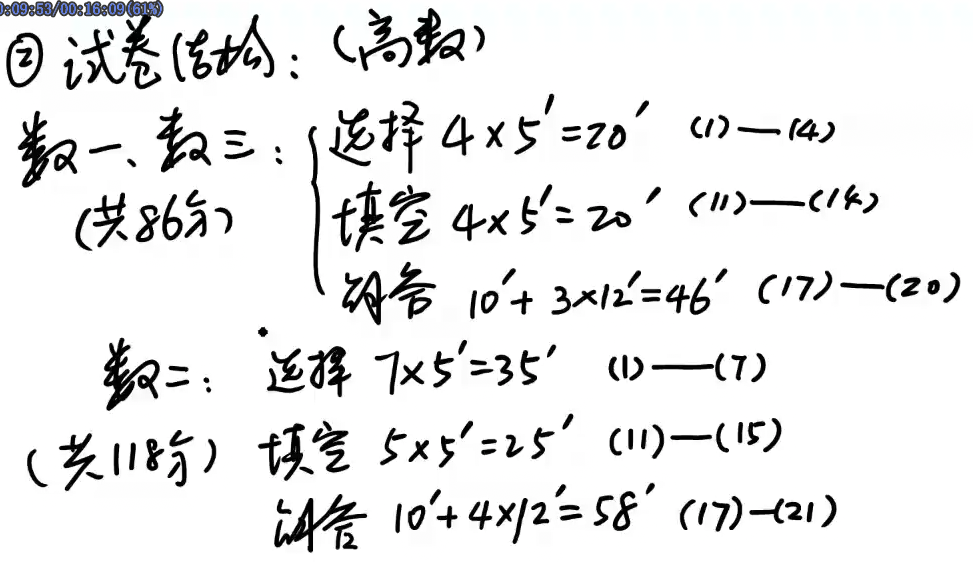 0:09:53/00:16:09(61%)
② 试卷结构：（高数）
数一、数三：{ 选择 4×5′=20′ (1)—(4)
（共86分） 填空 4×5′=20′ (11)—(14)
解答 10′+3×12′=46′ (17)—(20)
数二： 选择 7×5′=35′ (1)—(7)
（共118分） 填空 5×5′=25′ (11)—(15)
解答 10′+4×12′=58′ (17)—(21)